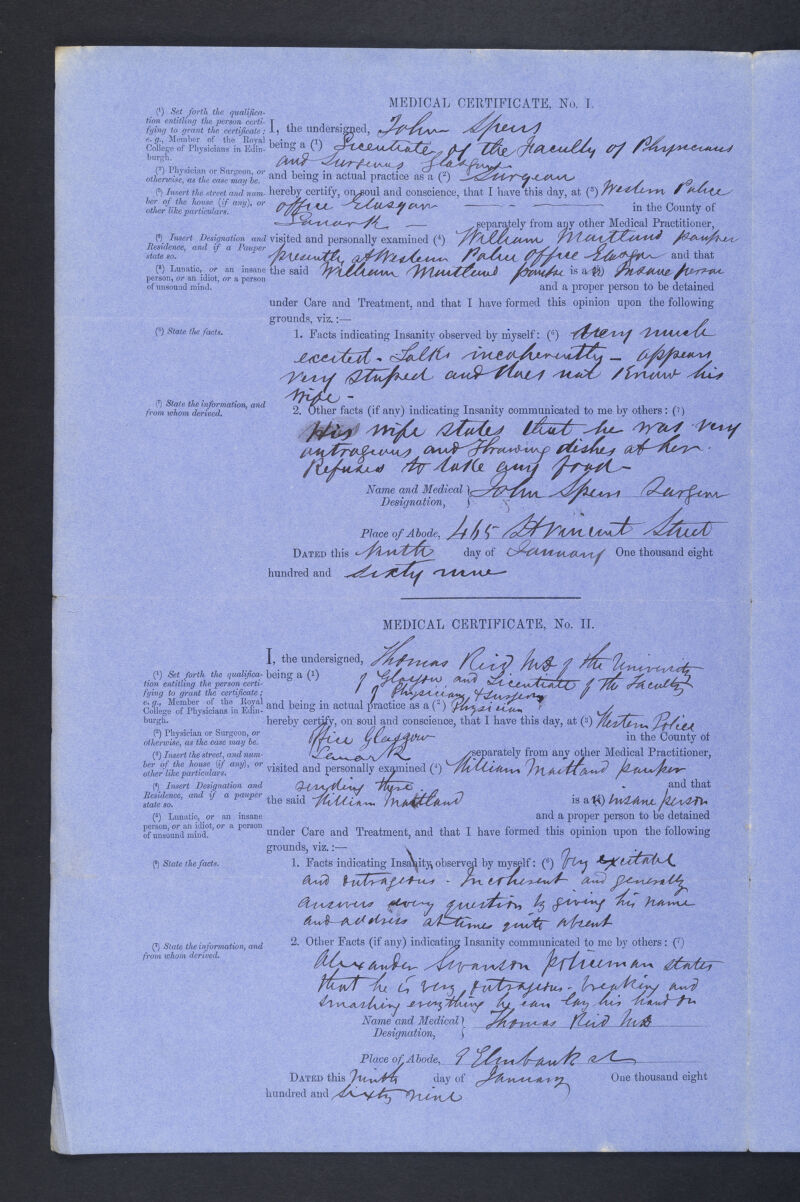 MEDICAL CERTIFICATE, No. I.
(1) Set forth the qualifica-
tion entitling the person certi-
fying to grant the certificate;
e.g., Member of the Royal
College of Physicians in Edin-
burgh.
I, the undersigned, John Spens
being a (1) Licentiate of the Faculty of Physicians
and Surgeons Glasgow
(2) Physician or Surgeon, or
otherwise, as the case may be.
and being in actual practice as a (2) Surgeon
(3) Insert the street and num-
ber of the house (if any), or
other like particulars.
hereby certify, on soul and conscience, that I have this day, at (3) Western Police
office Glasgow in the County of
Lanark separately from any other Medical Practitioner,
(4) Insert Designation and
Residence, and if a Pauper
state so.
visited and personally examined (4) William Maitland pauper
presently at Western Police Office Glasgow and that
(5) Lunatic, or an insane
person, or an idiot, or a person
of unsound mind.
the said William Maitland pauper is a (5) Insane person
and a proper person to be detained
under Care and Treatment, and that I have formed this opinion upon the following
grounds, viz.:—
(6) State the facts.
1. Facts indicating Insanity observed by myself: (6) Very much
excited - Talks incoherently - appears
very stupid and does not Know his
wife -
(7) State the information, and
from whom derived.
2. Other facts (if any) indicating Insanity communicated to me by others: (7)
His wife states that he was very
outrageous and Thrawing dishes at her.
Refuses to take any food -
Name and Medical Designation, John Spens Surgeon
Place of Abode, 465 St Vincent Street
DATED this Ninth day of January One thousand eight
hundred and Sixty nine
MEDICAL CERTIFICATE, No. II.
(1) Set forth the qualifica-
tion entitling the person certi-
fying to grant the certificate;
e.g., Member of the Royal
College of Physicians in Edin-
burgh.
I, the undersigned, Thomas Reid MD of the University
being a (1) of Glasgow and Licentiate of the Faculty
of Physicians & Surgeons
(2) Physician or Surgeon, or
otherwise, as the case may be.
and being in actual practice as a (2) Physician
(3) Insert the street, and num-
ber of the house (if any), or
other like particulars.
hereby certify, on soul and conscience, that I have this day, at (3) Western Police
Office Glasgow in the County of
Lanark separately from any other Medical Practitioner,
(4) Insert Designation and
Residence, and if a pauper
state so.
visited and personally examined (4) William Maitland pauper
residing there and that
(5) Lunatic, or an insane
person, or an idiot, or a person
of unsound mind.
the said William Maitland is a (5) insane person
and a proper person to be detained
under Care and Treatment, and that I have formed this opinion upon the following
grounds, viz.:—
(6) State the facts.
1. Facts indicating Insanity observed by myself: (6) Very excitable
and outrageous - Incoherent and generally
answers every question by giving his name
and address at times quite absent
(7) State the information, and
from whom derived.
2. Other Facts (if any) indicating Insanity communicated to me by others: (7)
Alexander Swanson policeman states
that he is very outrageous - breaking and
smashing everything he can lay his hand on
Name and Medical Designation, Thomas Reid MD
Place of Abode, 9 Elmbank st
DATED this Ninth day of January One thousand eight
hundred and Sixty nine